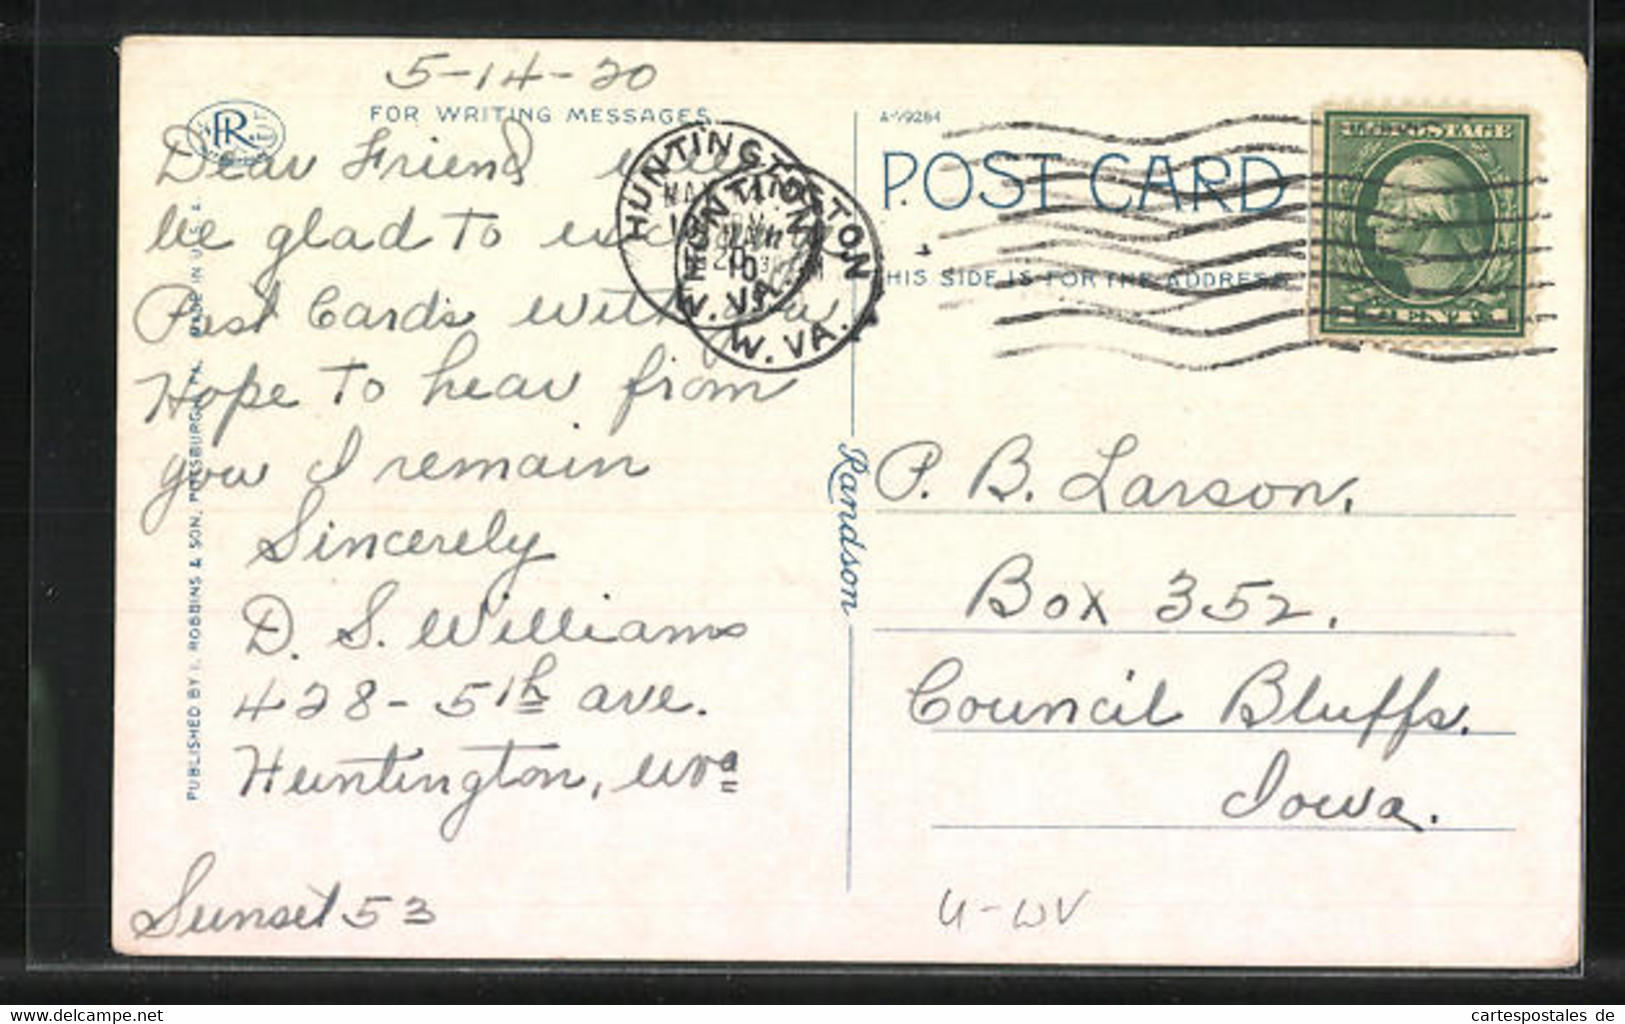 5-14-20
FOR WRITING MESSAGES
Dear Friend will
be glad to
Post Cards with you
Hope to hear from
you I remain
Sincerely
D. S. Williams
428 - 5th ave.
Huntington, Wva
Sunset 53
PUBLISHED BY I. ROBBINS & SON, PITTSBURGH, PA. MADE IN U.S.A.
R
HUNTINGTON
W. VA.
HUNTINGTON
W. VA.
Randson
A-79284
POST CARD
THIS SIDE IS FOR THE ADDRESS
P. B. Larson,
Box 352.
Council Bluffs,
Iowa.
U-WV
delcampe.net
cartespostales de